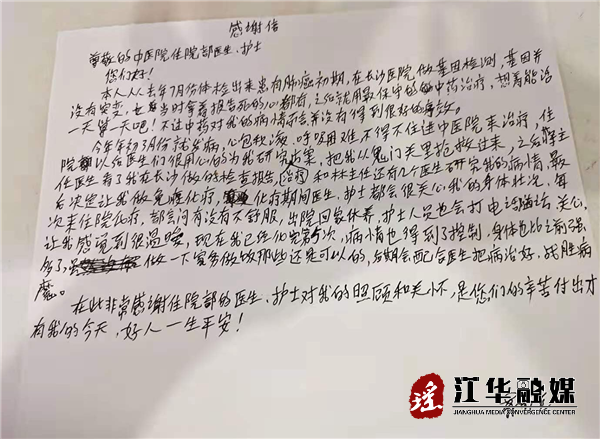 感谢信
尊敬的中医院住院部医生、护士
您们好!
本人从去年7月份体检出来患有肺癌初期,在长沙医院做基因检测,基因并
没有突变,当时拿着报告死的心都有,之后就用最保守的中药治疗,想着能活
一天算一天吧!不过中药对我的病情而言并没有得到很好的疗效。
今年年初3月份就发病,心包积液、呼吸困难,不得不住进中医院来治疗,住
院以后医生们很用心的为我研究方案,把我从鬼门关里抢救过来,之后主
任医生看了我在长沙做的检查报告,治疗和林主任还有几个医生研究我的病情,最
后决定让我做免疫化疗,化疗期间医生、护士都会很关心我的身体状况,每
次来住院化疗,都会问有没有不舒服,出院回家休养,护士人员也会打电话关心,
让我感觉到很温暖,现在我已经化完第5次,病情也得到了控制,身体也比之前强
多了,做一下家务做做那些还是可以的,后期会配合医生把病治好,战胜病
魔。
在此非常感谢住院部的医生、护士对我的照顾和关怀,是您们的辛苦付出才
有我的今天,好人一生平安!
瑶 江华融媒
JIANGHUA MEDIA CONVERGENCE CENTER